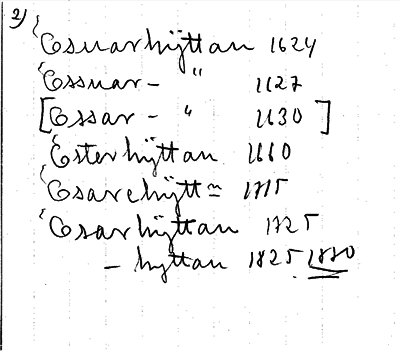 2)
Esmarhÿttan 1624
Essmar- " 1627
[Essar- " 1630]
Esterhÿttan 1660
Esarehÿtt= 1715
Esarhÿttan 1725
- hyttan 1825 1880